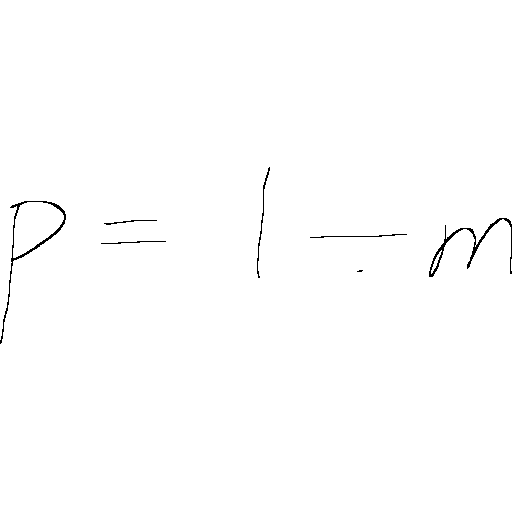 p = 1 - m